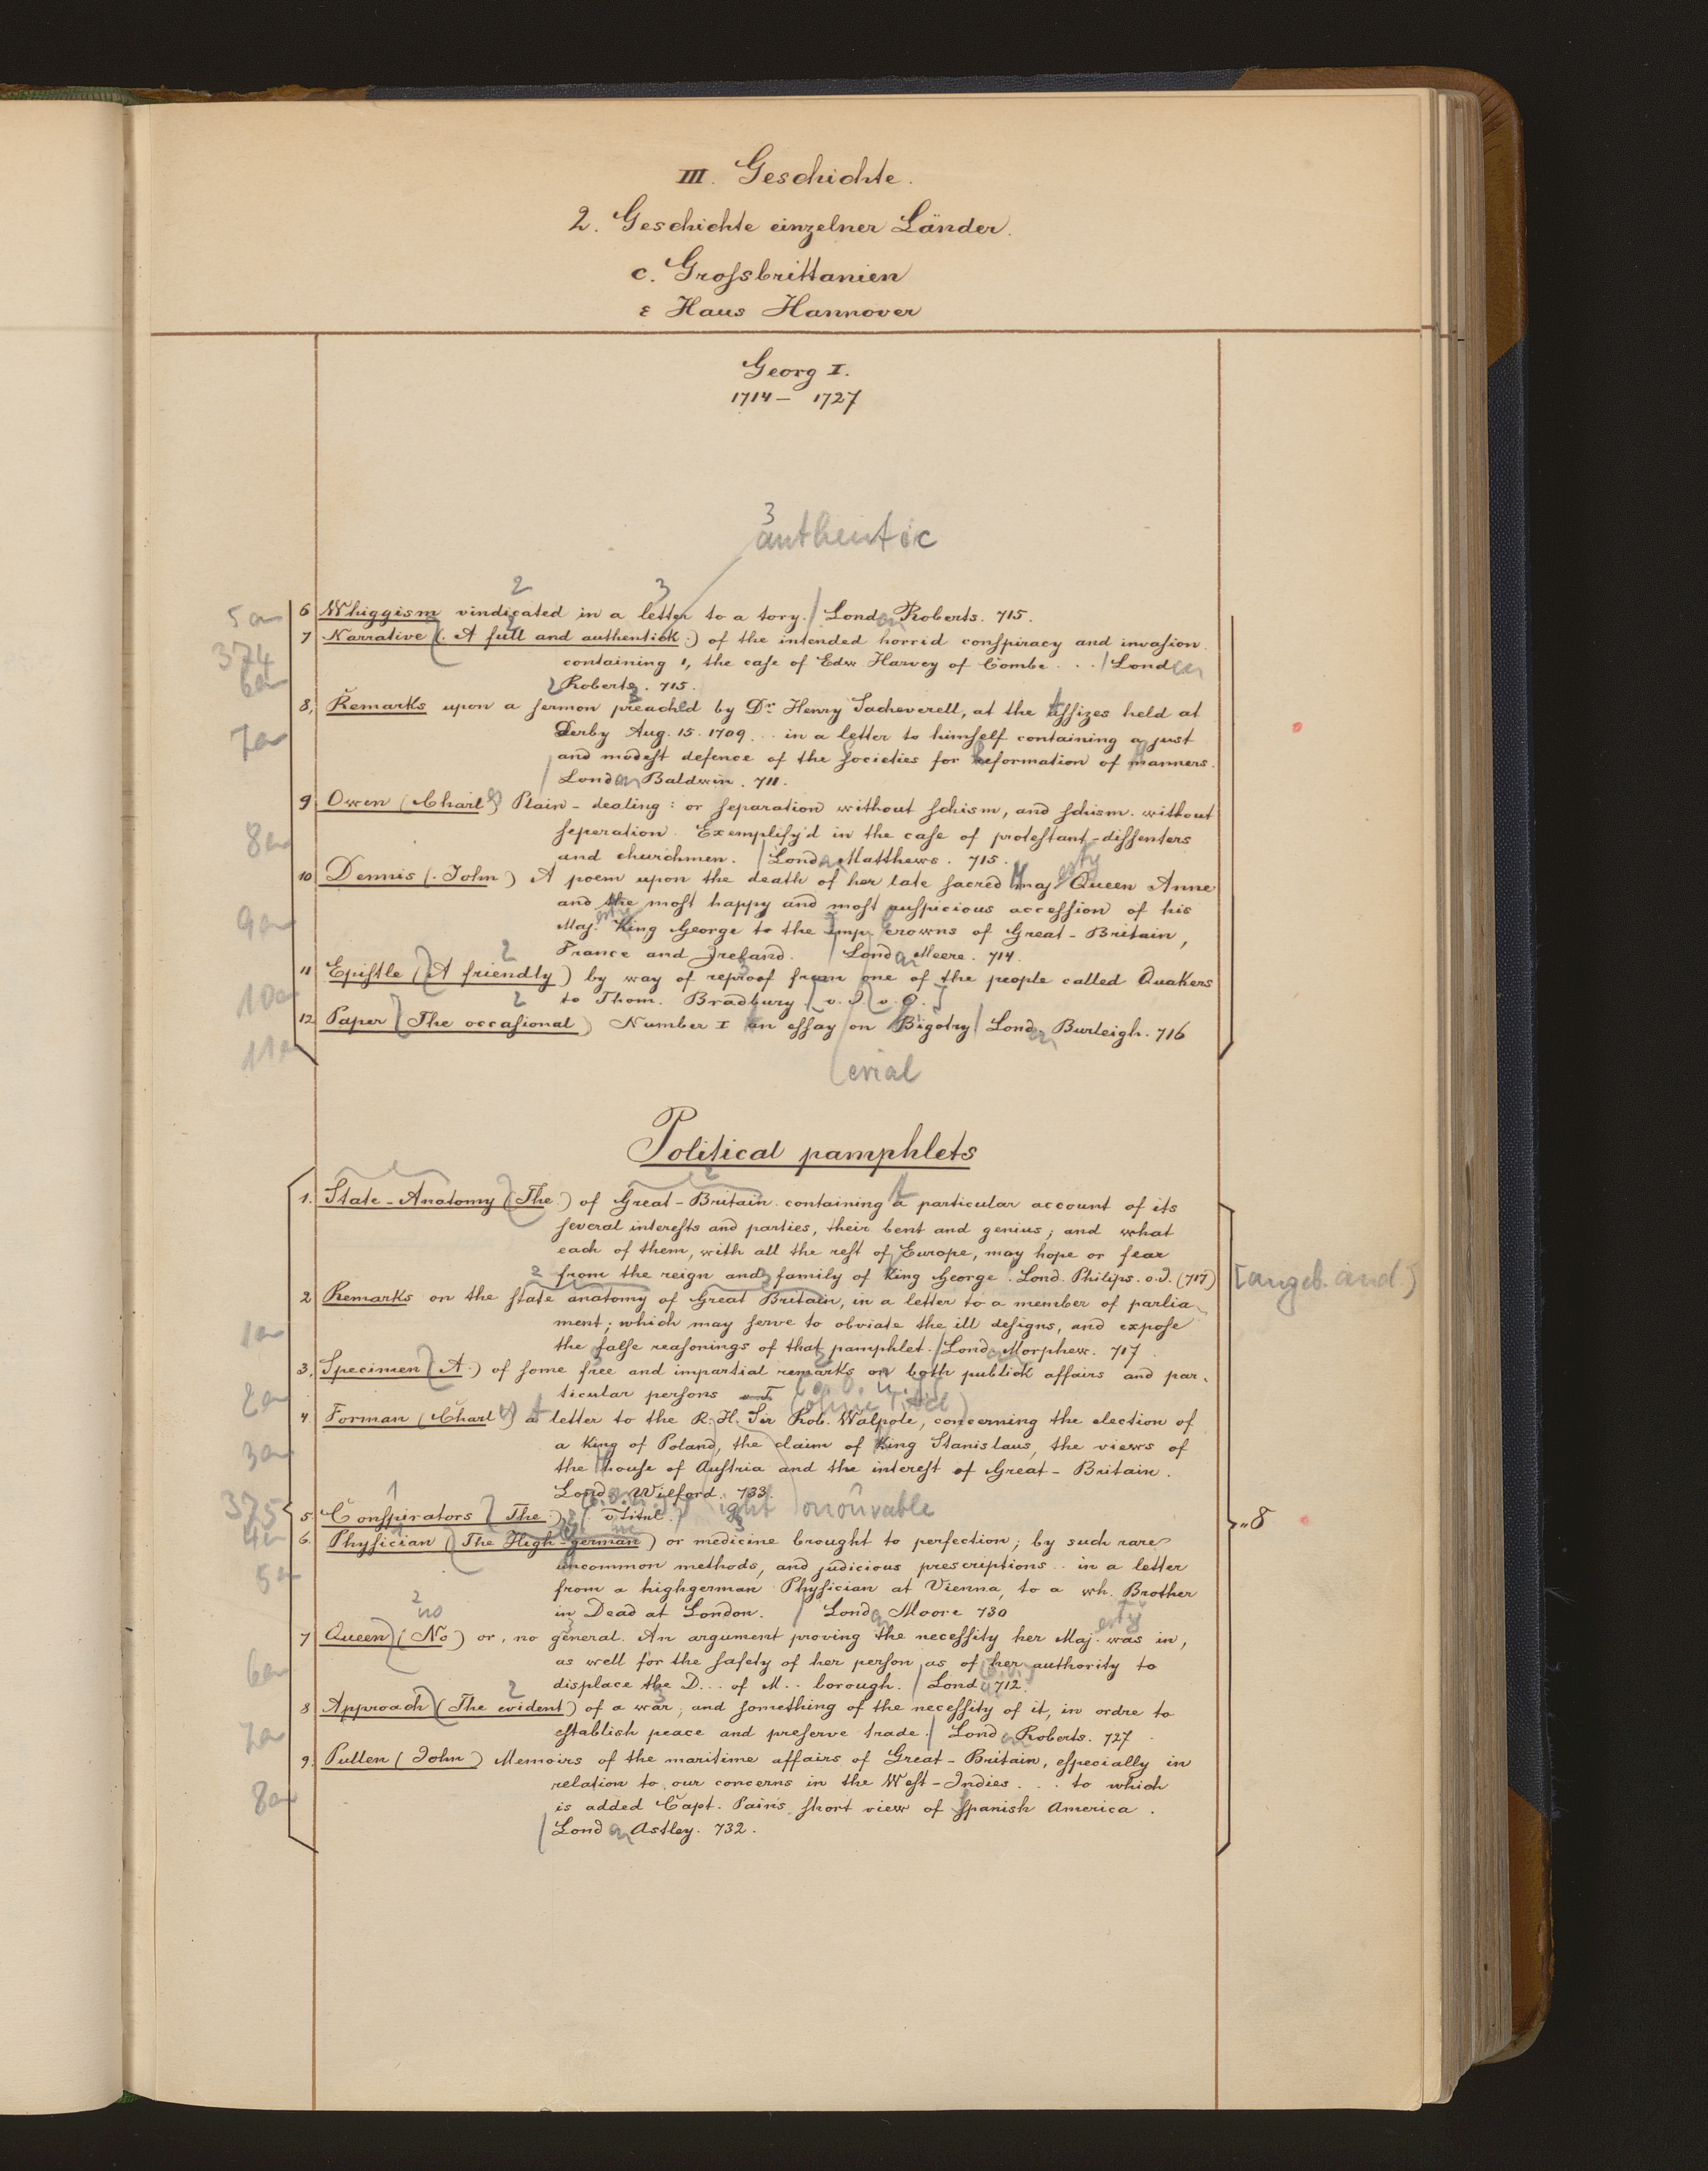 III. Geschichte.
2. Geschichte einzelner Länder.
c. Grossbrittanien
ε Haus Hannover
Georg I.
1714 – 1727
3
authentic
2 3
5an 6 Whiggism vindicated in a letter to a tory. / London Roberts. 715.
374 7 Narrative (. A full and authentick.) of the intended horrid conspiracy and invasion.
6an containing 1, the case of Edw Harvey of Combe . . . / London
Roberts. 715.
8, Remarks upon a sermon preached by Dr. Henry Sacheverell, at the Assizes held at
7an Derby Aug. 15. 1709 . . in a letter to himself containing a just
and modest defence of the Societies for Reformation of Manners.
/ London Baldwin. 711.
9 Owen (Charles) Plain-dealing: or separation without schism, and schism. without
8an seperation. Exemplify'd in the case of protestant-dissenters
and churchmen. / London Matthews. 715.
10 Dennis (. John) A poem upon the death of her late sacred Majesty Queen Anne
9an and the most happy and most auspicious accession of his
Maj. King George to the Imp. crowns of Great-Britain,
France and Ireland. / London Meere. 714.
11 Epistle (A friendly) by way of reproof from one of the people called Quakers
10an to Thom. Bradbury
12 Paper (The occasional) Number I an essay on Bigotry / London Burleigh. 716
11an
erial
Political pamphlets
1. State-Anatomy (The.) of Great-Britain. containing a particular account of its
several interests and parties, their bent and genius; and what
each of them, with all the rest of Europe, may hope or fear
from the reign and family of King George. Lond. Philips. o.J. (717) [angeb. and.]
2 Remarks on the state anatomy of Great Britain, in a letter to a member of parlia-
1an ment; which may serve to obviate the ill designs, and expose
the false reasonings of that pamphlet. / London Morphew. 717.
3, Specimen (A.) of some free and impartial remarks on both publick affairs and par-
2an ticular persons (ohne Titel)
4. Forman (Charles) A letter to the R. H. Sir Rob. Walpole, concerning the election of
3an a King of Poland, the claim of King Stanislaus, the views of
the House of Austria and the interest of Great-Britain.
Lond. Wilford. 733.
375 5 Conspirators (The.) o Titul. ight onourable „8
4an 6. Physician (The High-german) or medicine brought to perfection; by such rare
5an uncommon methods, and judicious prescriptions . . in a letter
from a highgerman Physician at Vienna, to a wh. Brother
in Dead at London. / London Moore 730
2 no
7 Queen (No) or, no general. An argument proving the necessity her Majesty was in,
6an as well for the safety of her person, as of her authority to
displace the D... of M.. borough. / Lond. 712.
8 Approach (The evident) of a war, and something of the necessity of it, in ordre to
7an establish peace and preserve trade. / London Roberts. 727
9. Pullen (John) Memoirs of the maritime affairs of Great-Britain, especially in
8an relation to our concerns in the West-Indies . . . to which
is added Capt. Pain's short view of Spanish America.
/ London Astley. 732.